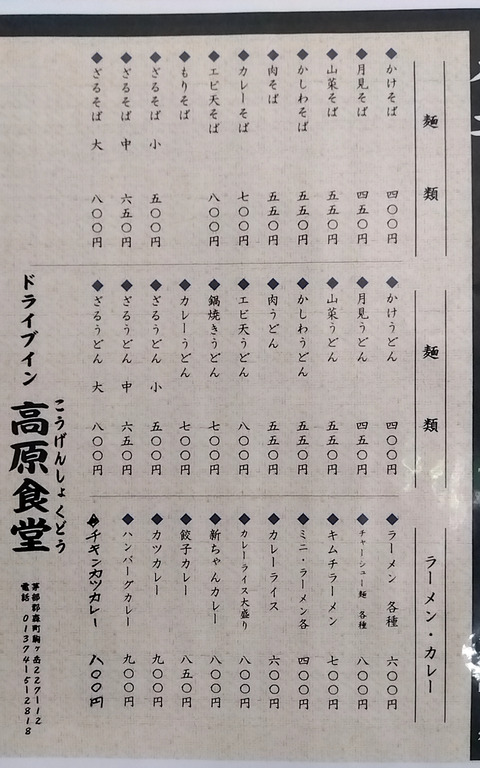 麺類
◆かけそば 四〇〇円
◆月見そば 四五〇円
◆山菜そば 五五〇円
◆かしわそば 五五〇円
◆肉そば 五五〇円
◆カレーそば 七〇〇円
◆エビ天そば 八〇〇円
◆もりそば
◆ざるそば 小 五〇〇円
◆ざるそば 中 六五〇円
◆ざるそば 大 八〇〇円
麺類
◆かけうどん 四〇〇円
◆月見うどん 四五〇円
◆山菜うどん 五五〇円
◆かしわうどん 五五〇円
◆肉うどん 五五〇円
◆エビ天うどん 八〇〇円
◆鍋焼きうどん 七〇〇円
◆カレーうどん 七〇〇円
◆ざるうどん 小 五〇〇円
◆ざるうどん 中 六五〇円
◆ざるうどん 大 八〇〇円
ラーメン・カレー
◆ラーメン 各種 六〇〇円
◆チャーシュー麺 各種 八〇〇円
◆キムチラーメン 七〇〇円
◆ミニ・ラーメン各 四〇〇円
◆カレーライス 六〇〇円
◆カレーライス大盛り 八〇〇円
◆新ちゃんカレー 八〇〇円
◆餃子カレー 八五〇円
◆カツカレー 九〇〇円
◆ハンバーグカレー 九〇〇円
◆チキンカツカレー 八〇〇円
ドライブイン
こうげんしょくどう
高原食堂
茅部郡森町駒ヶ岳227-12
電話 01374-5-2818